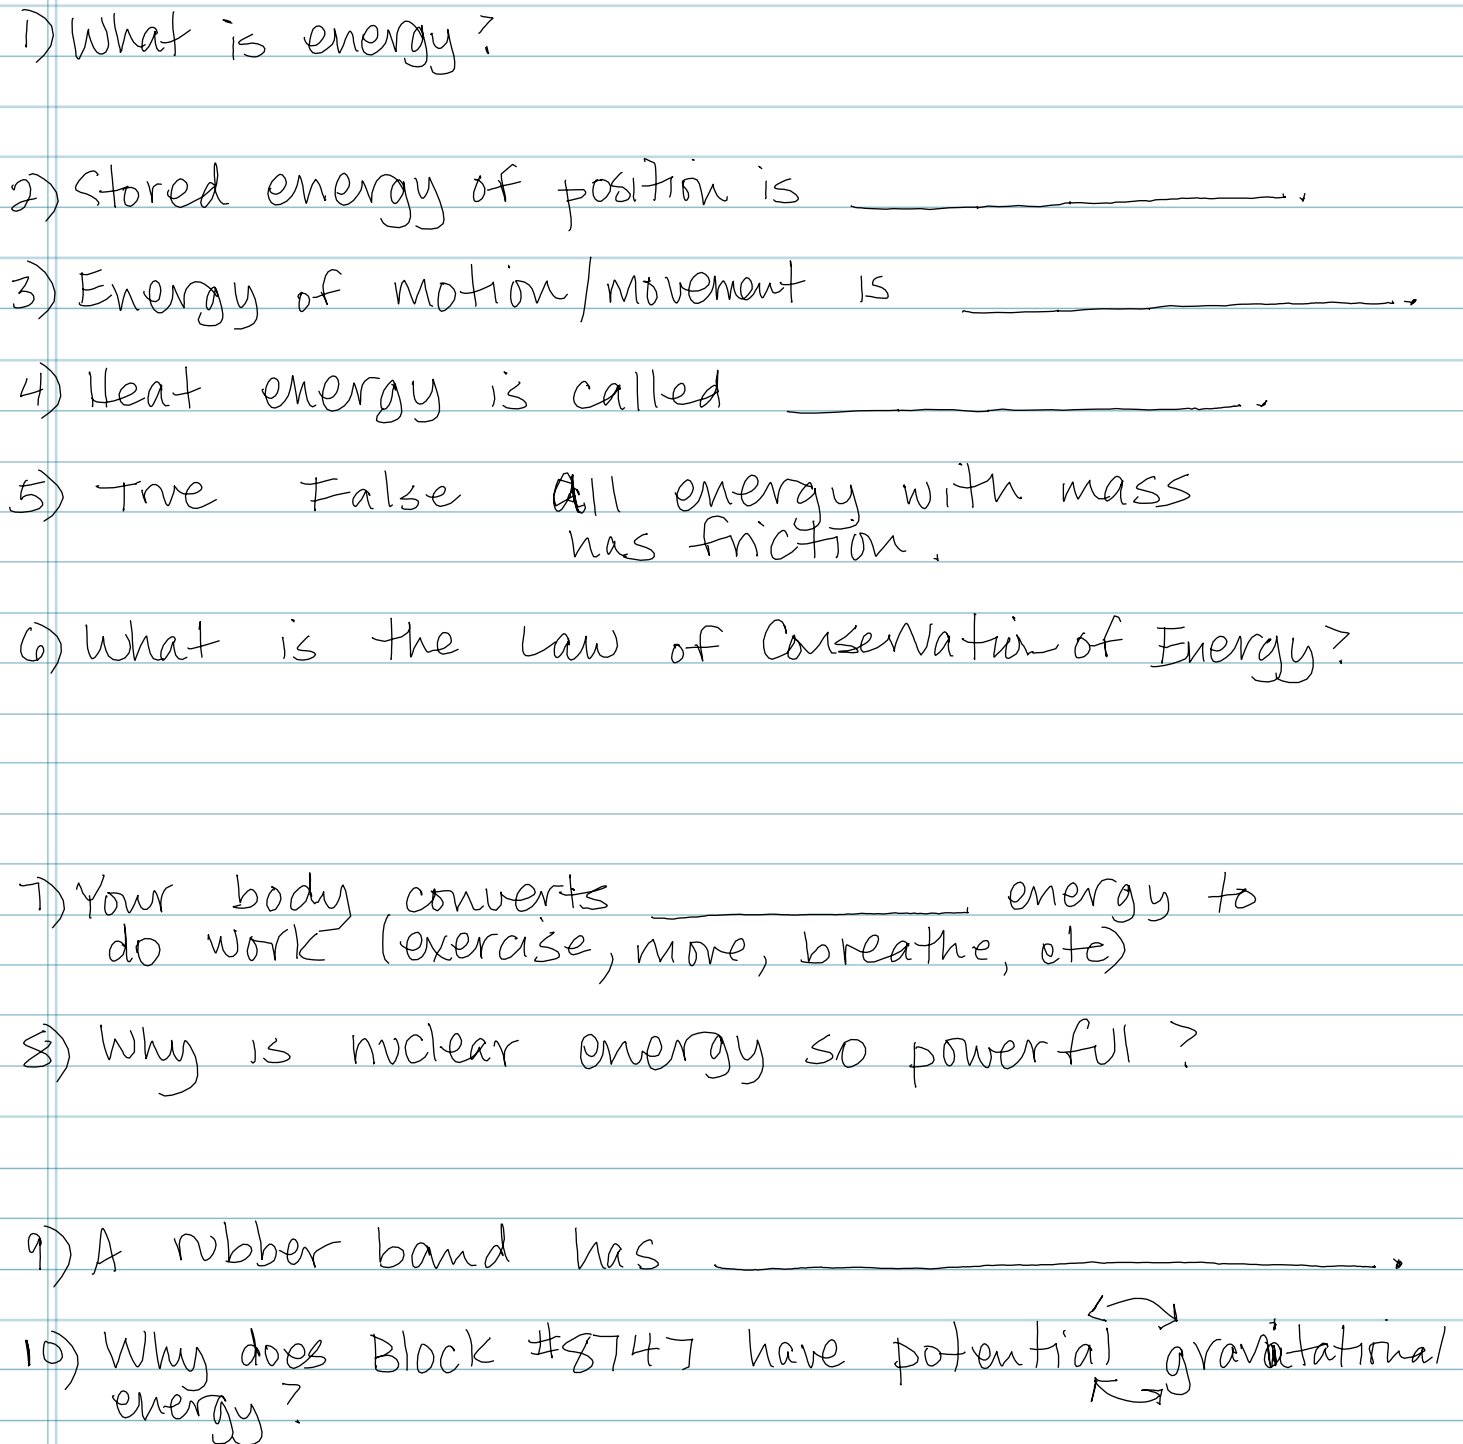 1) What is energy?
2) Stored energy of position is ____________.
3) Energy of motion/movement is ____________.
4) Heat energy is called ____________.
5) True False All energy with mass
has friction.
6) What is the Law of Conservation of Energy?
7) Your body converts ____________ energy to
do work (exercise, move, breathe, etc)
8) Why is nuclear energy so powerful?
9) A rubber band has ____________.
10) Why does Block #8747 have potential gravitational
energy?